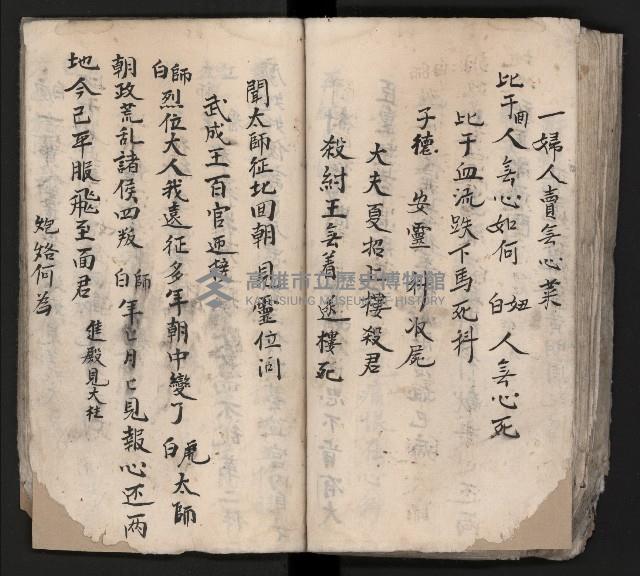 一婦人賣無心菜
比干回人無心如何 妞白 人無心死
比干血流跌下馬死科
子德 安靈 收屍
大夫夏招上樓殺君
殺紂王無着 樓死
聞太師征北回朝 見靈位问
武成王百官迎
師白 烈位大人我遠征多年朝中變了 虎白 太師
朝政荒乱諸侯四叛 師白 年亡月亡見報心还两
地今已平服飛至面君 進殿見大柱
炮烙何為
高雄市立歷史博物館
KAOHSIUNG MUSEUM OF HISTORY